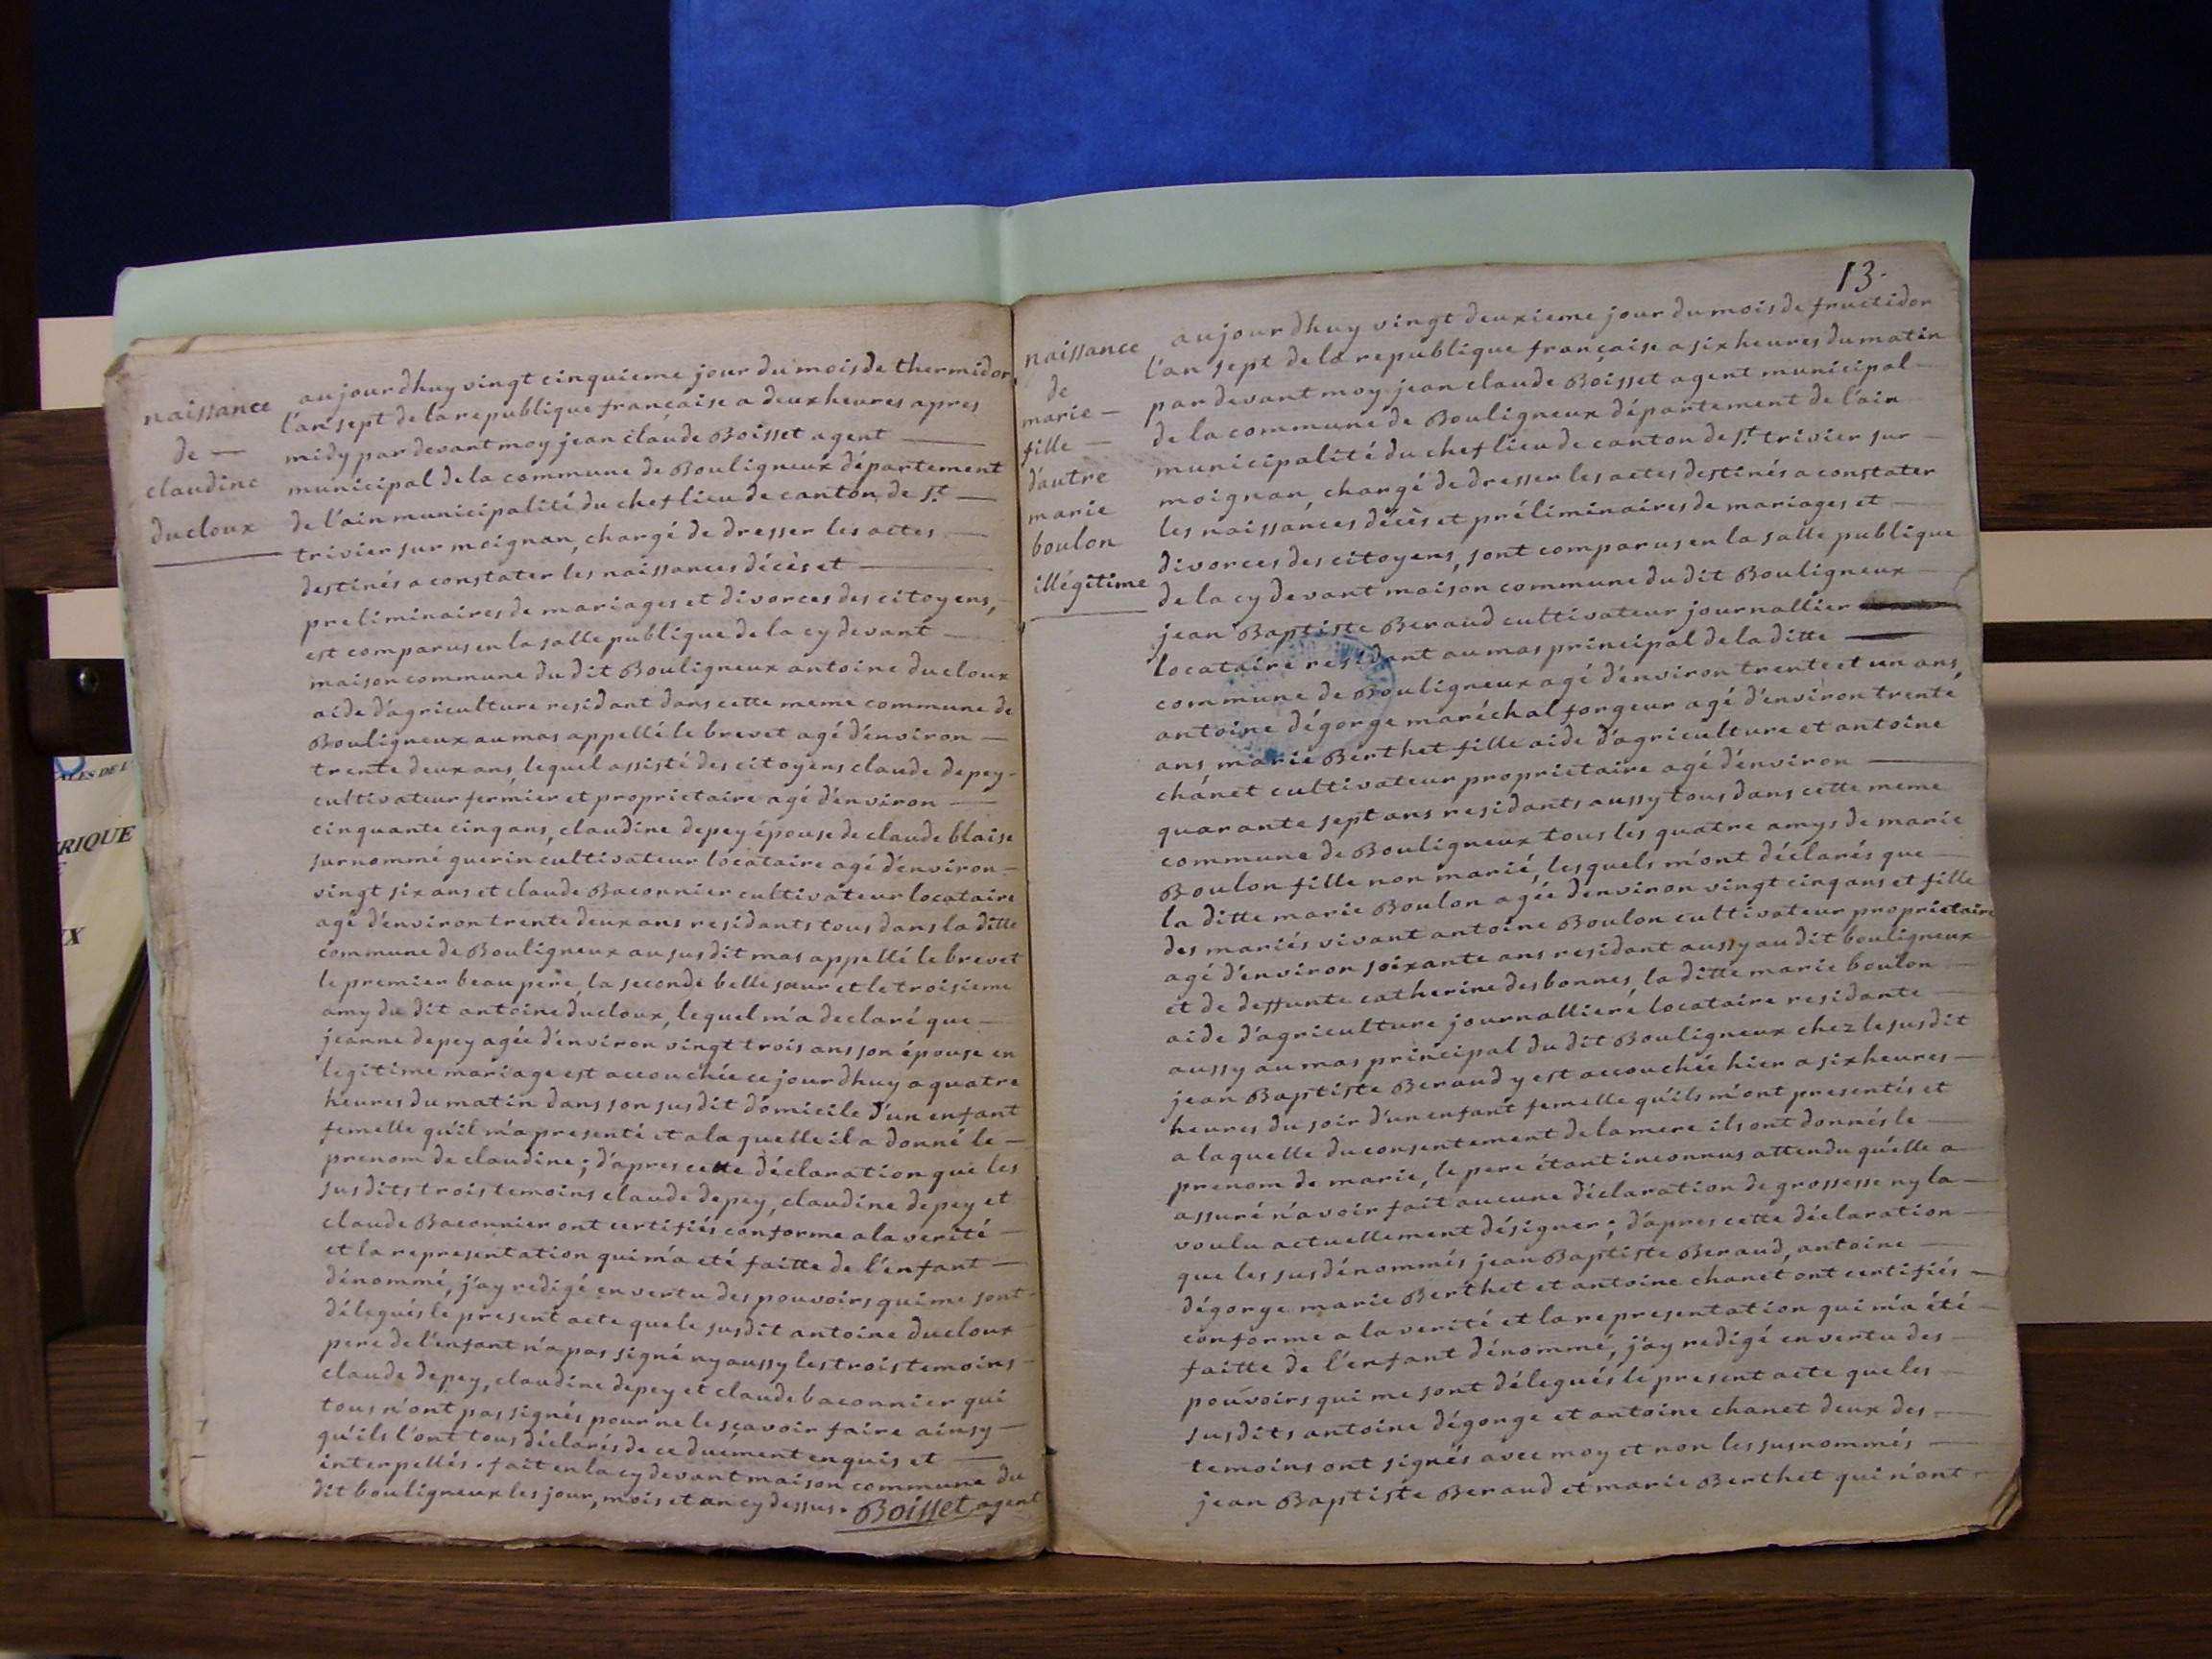 naissance
de —
claudine
ducloux
aujourdhuy vingt cinquieme jour du mois de thermidor
l'an sept de la republique française a deux heures apres
midy par devant moy jean claude Boisset agent —
municipal de la commune de Bouligneux département
de l'ain municipalité du chef lieu de canton de St —
trivier sur moignan, chargé de dresser les actes —
destinés a constater les naissances décès et —
preliminaires de mariages et divorces des citoyens,
est comparus en la salle publique de la cy devant —
maison commune du dit Bouligneux antoine ducloux
aide d'agriculture residant dans cette meme commune de
Bouligneux au mas appellé le brevet agé d'environ —
trente deux ans, lequel assisté des citoyens claude depey
cultivateur fermier et proprietaire agé d'environ —
cinquante cinq ans, claudine depey épouse de claude blaise
surnommé guerin cultivateur locataire agé d'environ —
vingt six ans et claude Baconnier cultivateur locataire
agé d'environ trente deux ans residants tous dans la ditte
commune de Bouligneux au susdit mas appellé le brevet
le premier beau pere, la seconde belle sœur et le troisieme
amy du dit antoine ducloux, lequel m'a declaré que —
jeanne depey agée d'environ vingt trois ans son épouse en
legitime mariage est accouchée ce jourdhuy a quatre
heures du matin dans son susdit domicile d'un enfant
femelle qu'il m'a presenté et a la quelle il a donné le —
prenom de claudine; d'apres cette déclaration que les
susdits trois temoins claude depey, claudine depey et
claude Baconnier ont certifiés conforme a la verité —
et la representation qui m'a eté faitte de l'enfant —
dénommé, j'ay redigé en vertu des pouvoirs qui me sont
délegués le present acte que le susdit antoine ducloux
pere de l'enfant n'a pas signé ny aussy les trois temoins
claude depey, claudine depey et claude baconnier qui
tous n'ont pas signés pour ne le sçavoir faire ainsy —
qu'ils l'ont tous déclarés de ce duëment enquis et —
interpellés. fait en la cy devant maison commune du
dit bouligneux les jour, mois et an cy dessus. Boisset agent
13.
naissance
de
marie —
fille —
d'autre
marie
boulon
illégitime
aujourdhuy vingt deuxieme jour du mois de fructidor
l'an sept de la republique française a six heures du matin
par devant moy jean claude Boisset agent municipal —
de la commune de Bouligneux département de l'ain
municipalité du chef lieu de canton de St trivier sur —
moignan, chargé de dresser les actes destinés a constater
les naissances décès et préliminaires de mariages et —
divorces des citoyens, sont comparus en la salle publique
de la cy devant maison commune du dit Bouligneux —
jean Baptiste Beraud cultivateur journallier
locataire residant au mas principal de la ditte —
commune de Bouligneux agé d'environ trente et un ans
antoine dégorge maréchal forgeur agé d'environ trente
ans marie Berthet fille aide d'agriculture et antoine
chanet cultivateur proprietaire agé d'environ —
quarante sept ans residants aussy tous dans cette meme
commune de Bouligneux tous les quatre amys de marie
Boulon fille non marié, lesquels m'ont déclarés que —
la ditte marie Boulon agée d'environ vingt cinq ans et fille
des mariés vivant antoine Boulon cultivateur proprietaire
agé d'environ soixante ans residant aussy au dit bouligneux
et de deffunte catherine desbonnes, la ditte marie boulon —
aide d'agriculture journalliere locataire residante —
aussy au mas principal du dit Bouligneux chez le susdit
jean Baptiste Beraud y est accouchée hier a six heures —
heures du soir d'un enfant femelle qu'ils m'ont presentés et
a laquelle du consentement de la mere ils ont donnés le —
prenom de marie, le pere étant inconnus attendu qu'elle a
assuré n'avoir fait aucune déclaration de grossesse ny la —
voulu actuellement désigner; d'apres cette déclaration —
que les susdénommés jean Baptiste Beraud, antoine —
dégorge marie Berthet et antoine chanet ont certifiés —
conforme a la verité et la representation qui m'a été —
faitte de l'enfant dénommé, j'ay redigé en vertu des —
pouvoirs qui me sont délegués le present acte que les —
susdits antoine dégorge et antoine chanet deux des —
temoins ont signés avec moy et non les susnommés —
jean Baptiste Beraud et marie Berthet qui n'ont
RIQUE